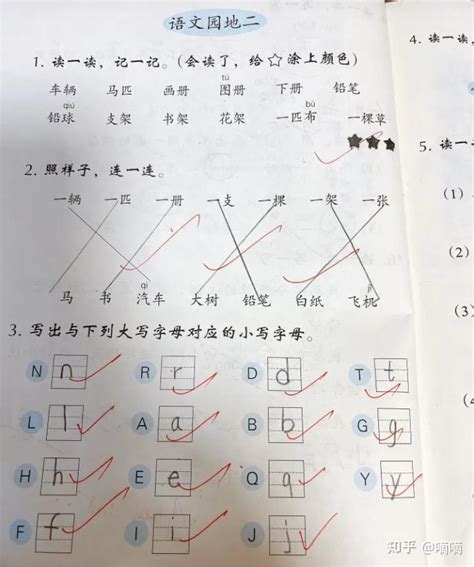 语文园地二
1. 读一读，记一记。(会读了，给☆涂上颜色)
tú
车辆 马匹 画册 图册 下册 铅笔
qiú bù
铅球 支架 书架 花架 一匹布 一棵草
2. 照样子，连一连。
一辆 一匹 一册 一支 一棵 一架 一张
qì jī
马 书 汽车 大树 铅笔 白纸 飞机
3. 写出与下列大写字母对应的小写字母。
N n R r D d T t
L l A a B b G g
H h E e Q q Y y
F f I i J j
4. 读一读，
5. 读一
(1)
(2)
(3)
知乎 @嘀嘀